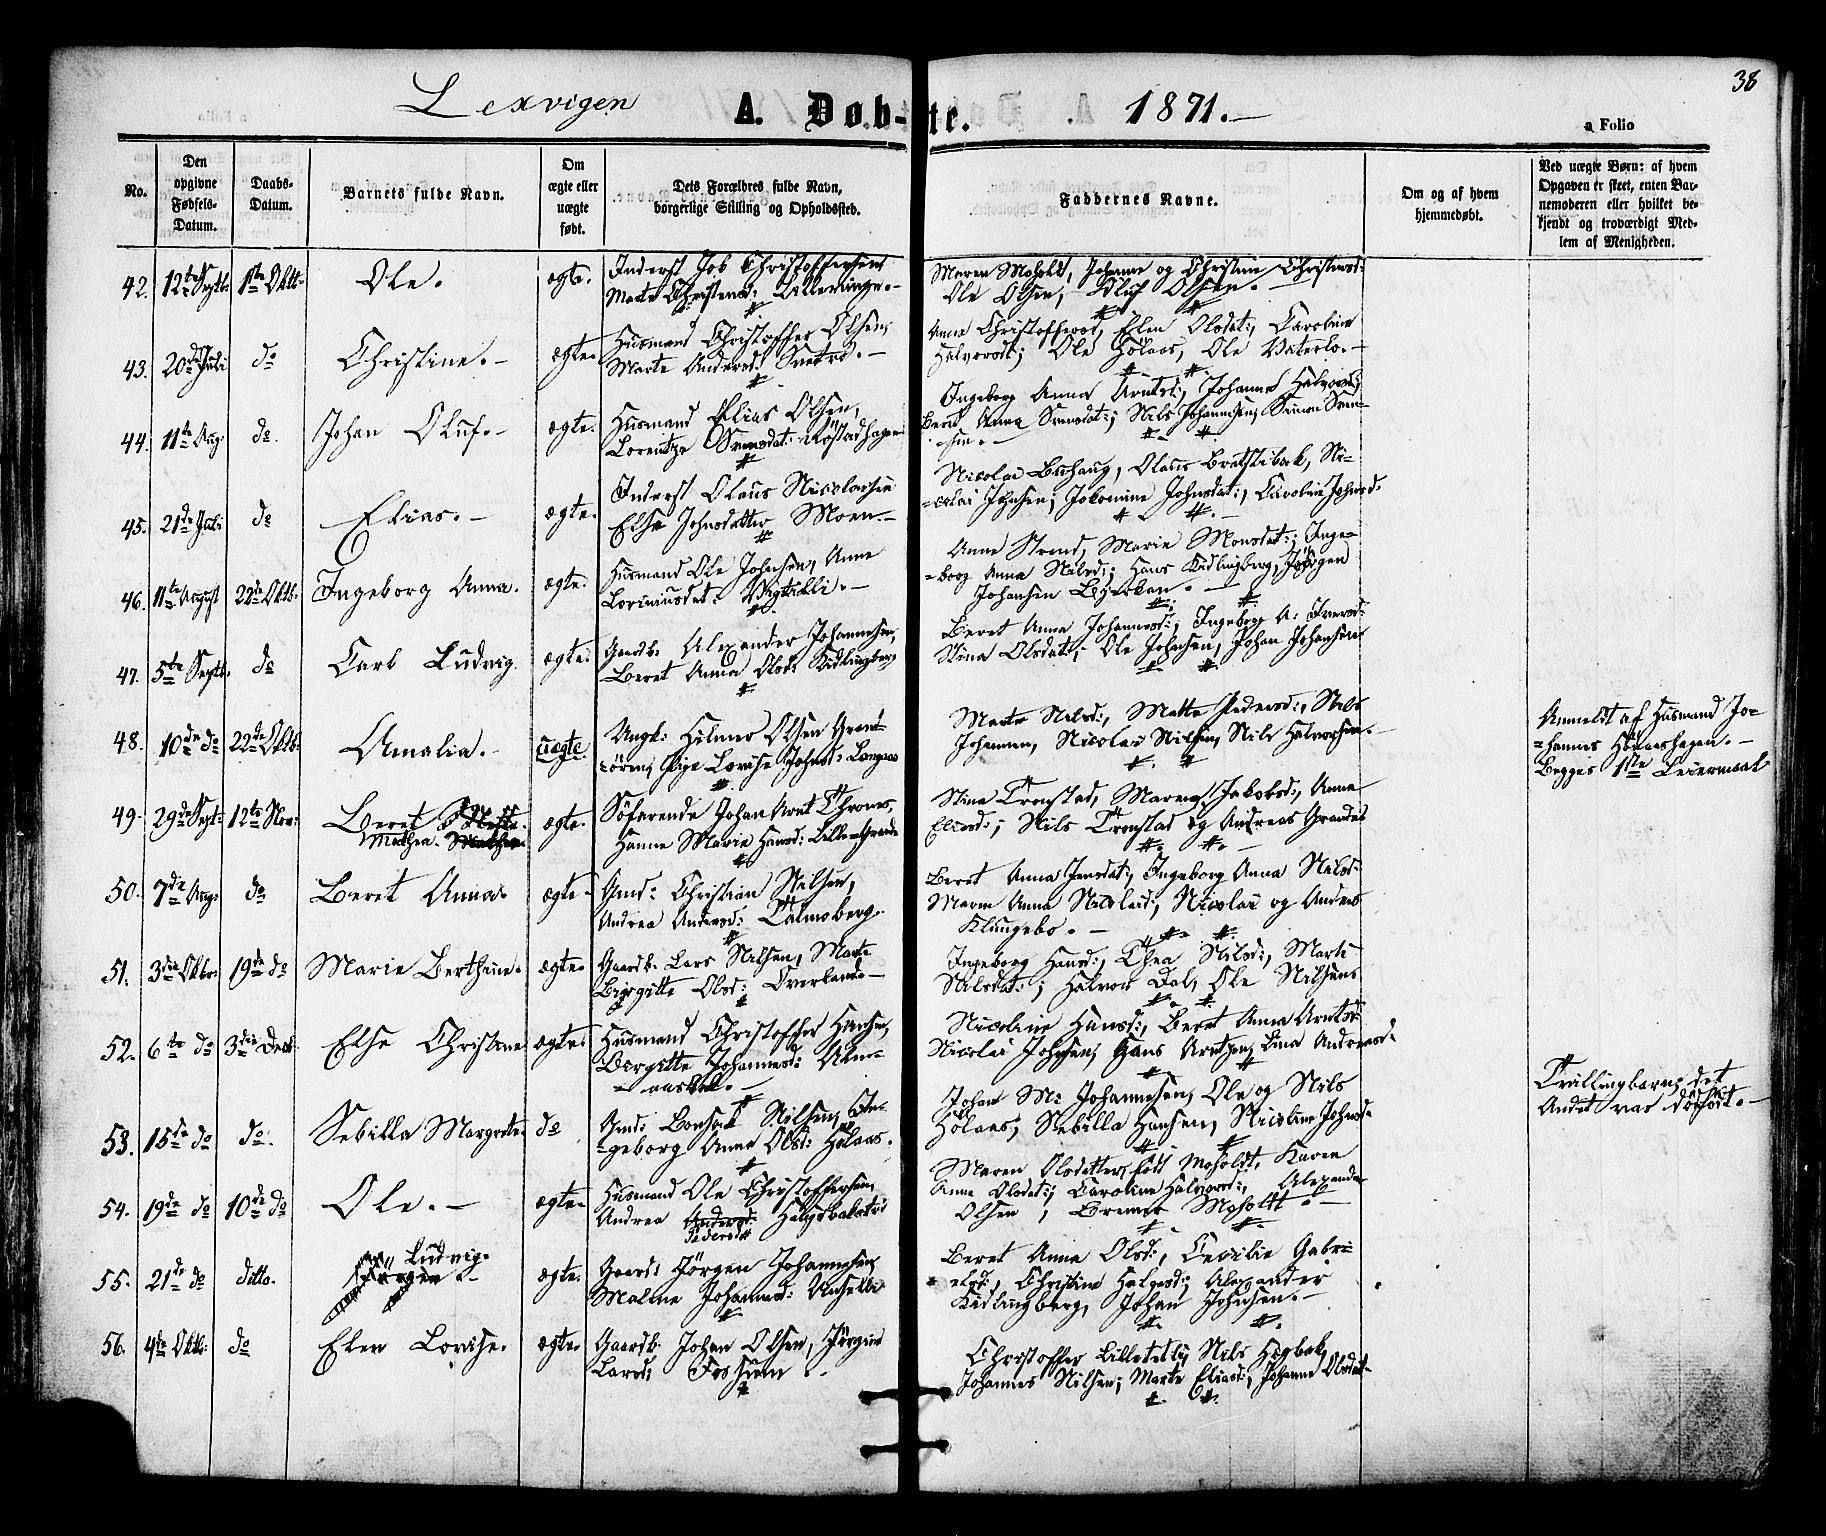 38
Lexvigen A. Døb-te. 1871.-
a Folio
No.
Den opgivne Fødsels-Datum.
Daabs-Datum.
Barnets fulde Navn.
Om ægte eller uægte født.
Dets Forældres fulde Navn, borgerlige Stilling og Opholdssted.
Faddernes Navne.
Om og af hvem hjemmedøbt.
Ved uægte Børn: af hvem Opgaven er skeet, enten Barnemoderen eller hvilket bekjendt og troværdigt Medlem af Menigheden.
42. 12te Septb: 1ste Oktb: Ole. ægte. Inderst Job Christoffersen
Marte Christensd:
Maren Moholdt, Johanna og Christine Christensd:
Ole Olsen, Oluf Olsen.-
43. 20de Juli do Christine.- ægte. Husmand Christoffer Olsen,
Marte Andersd:
Anna Christoffersd, Elen Olsdat:, Caroline
Halvorsdt; Ole Hölaas, Ole Vaterlo.-
44. 11te Aug: do. Johan Oluf.- ægte. Husmand Elias Olsen,
Lorentze Svensdat: Röstadhagen
Ingeborg Anna Arntsd:, Johanna Halvorsd,
Beret Anna Svensdat:; Nils Johannesen, Simon Sven=
=sen.-
45. 21de Juli do Elias.- ægte. Inderst Olaus Nicolaisen
Else Johnsdatter Moen.-
Nicolai Bohaug, Olaus Bratlibak, Ni=
=colai Johnsen; Jokomine Johnsdat:, Caroline Johnsd:
46. 11te August 22de Oktb: Ingeborg Anna. ægte. Husmand Ole Johnsen, Anne
Anne Strand, Marie Monsdat:; Inge=
=borg Anna Nilsd:; Hans Kidlingberg, Jörgen
Johansen
47. 5te Septb: do Carl Ludvig. ægte: Gaardb: Alexander Johannesen,
Beret Anna Olsd: Kidlingberg
Beret Anna Johannesd:, Ingeborg A: Iversd:
Stina Olsdat:; Ole Johnsen, Johan Johansen
48. 10de do 22de Oktb: Amalia.- uægte Ungk: Hilmer Olsen Grant=
=ören, Pige Lovise Johnsd:
Marte Nilsd:, Mette Pedersd:, Nils
Johansen, Nicolai Nilsen, Nils Halvorsen.-
Anmeldt af Husmand Jo=
=hannes
Begges 1ste Leiermaal
49. 29de Sept: 12te Nov: Beret
Mathea. ægte. Söfarende Johan Arnt Thrones,
Hanne Marie Hansd: Lillemgrande
Stina Tronstad, Maren Jakobsd:, Anna
Eliasd:; Nils Tronstad og Andreas Grande
50. 7de Aug: do Beret Anna. ægte. Gmd: Christian Nilsen,
Andrea Andersd:
Beret Anna Jensdat:, Ingeborg Anna Nilsd:
Maren Anna Nicolaid:, Nicolai og Anders
Klungebo.-
51. 3die Oktbr: 19de do Marie Berthine. ægte. Gaardb: Lars Nilsen, Marte
Birgitte Olsd: Overland.-
Ingeborg Hansd:, Thea Nilsd:, Marte
Nilsdat:; Halvor Dal, Ole Nilsen
52. 6te do 3die Decb: Else Christine ægte. Husmand Christoffer Hansen,
Birgitte Johannesd:
Nicoline Hansd:, Beret Anna Arntsd:
Nicolai Johnsen, Hans Arntzen, Lina Andreasd:
53. 15de do do. Sebilla Margrete. do Gmd: Bonsak Nilsen, In=
=geborg Anna Olsd: Hölaas.
Johan M: Johannesen, Ole og Nils
Hölaas, Sebilla Hansen, Nicoline Johnsd:
Tvillingbarn; det
Andet var dödfödt.-
54. 19de do 10de do Ole.- ægte. Husmand Ole Christoffersen,
Andrea Andersd:
Pedersd:
Maren Olsdatter, födt Moholdt, Karen
Anna Olsdat:; Caroline Halvorsd:, Alexander
Olsen, Moholdt
55. 21de do ditto. Ludvig.
Jörgen.- ægte. Gaardb: Jörgen Johannesen,
Maline Johannesd:
Beret Anna Olsd:, Cecilie Gabri=
=elsd:, Christine Helgesd:; Alexander
Kidlingberg, Johan Johnsen.-
56. 4de Oktb: do Elen Lovise. ægte. Gaardb: Johan Olsen, Jörgine
Larsd: Fossum.
Christoffer, Nils Hegbak,
Johannes Nilsen; Marte Eliasd:, Johanna Olsdat